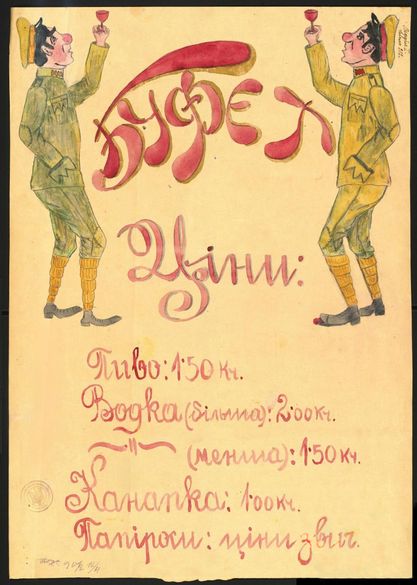 Буфет
Ціни:
Пиво: 1·50 Кч.
Водка (більша): 2·00 кч.
~ıı~ (менша): 1·50 Кч.
Канапка: 1·00 кч.
Папіроси: ціни звич.